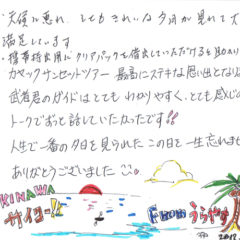 天候に恵れ、とてもきれいな夕日が見れて大
満足しています
・携帯持出用にクリアパックを借出していただけると助かり
カヤックサンセットツアー 最高にステキな思い出となり
武者君のガイドはとても わかりやすく、とても感じの
トークでずっと話していたかったです!!
人生で一番の夕日を見られた この日を一生忘れませ
ありがとうございました
KINAWA
サイコー!!
FROM うらやす
2012